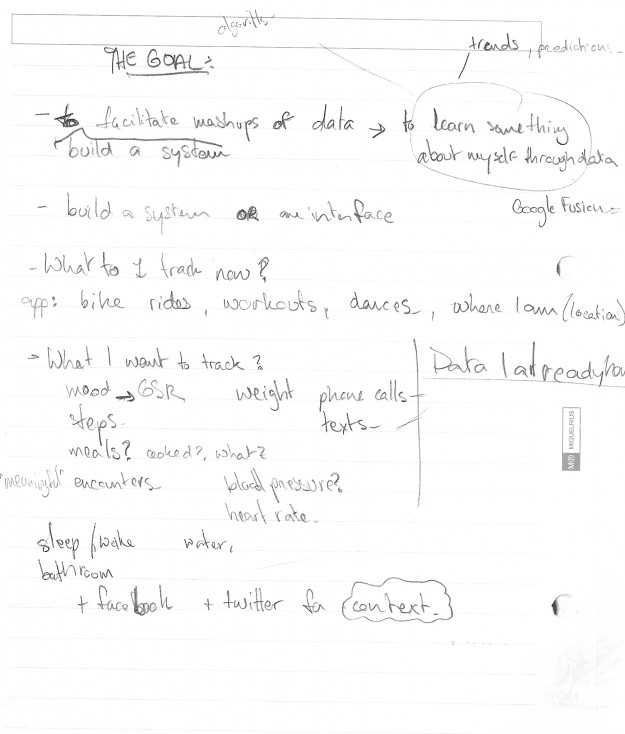 algorithm
trends, predictions
THE GOAL:
- to facilitate mashups of data → to learn something
build a system
about myself through data
- build a system OR an interface
Google Fusion
- What to I track now?
app: bike rides, workouts, dances, where I am (location)
- What I want to track?
Data I already hav
mood → GSR weight phone calls
steps texts
meals? cooked?, what?
MIQUELRIUS
"meaningful" encounters blood pressure?
heart rate
sleep/wake water,
bathroom
+ facebook + twitter fo context